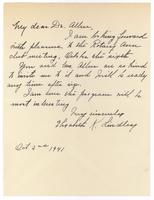 My dear Dr. Allen,
I am looking forward
with pleasure to the Rotary Ann
club meeting, October the sixth.
You and Mrs. Allen are so kind
to invite me to it and I will be ready
any time after six.
I am sure the program will be
most interesting
Very sincerely
Elizabeth K. Lindley
Oct 2nd 1941